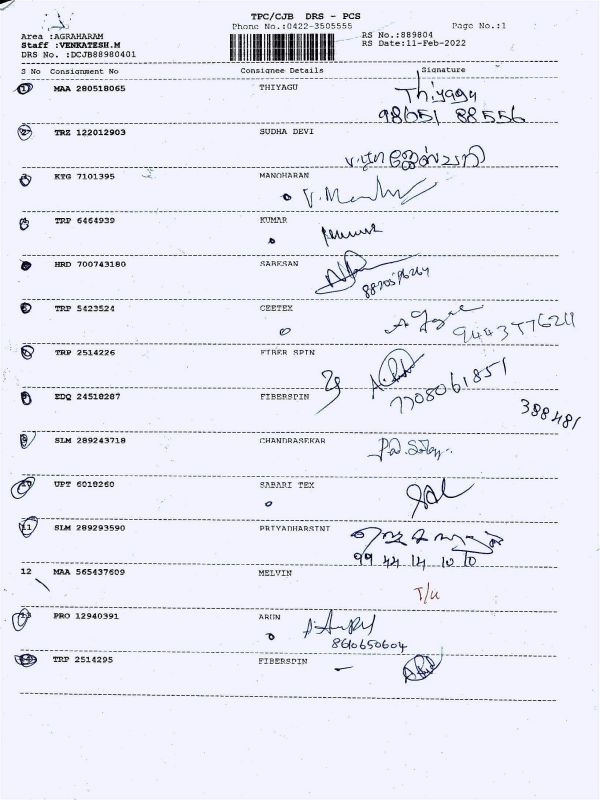 TPC/CJB DRS - PCS
Phone No.:0422-3505555 Page No.:1
Area :AGRAHARAM RS No.:889804
Staff :VENKATESH.M RS Date:11-Feb-2022
DRS No. :DCJB88980401
S No Consignment No Consignee Details Signature
1 MAA 280518065 THIYAGU Thiyagu
98651 88556
2 TRZ 122012903 SUDHA DEVI
3 KTG 7101395 MANOHARAN
4 TRP 6464939 KUMAR
HRD 700743180 SABESAN
TRP 5423524 CEETEX
TRP 2514226 FIBER SPIN
7708061851
EDQ 24518287 FIBERSPIN
388481
9 SLM 289243718 CHANDRASEKAR
10 UPT 6018260 SABARI TEX
11 SLM 289293590 PRIYADHARSINI
99 44 14 10 10
12 MAA 565437609 MELVIN
13 PRO 12940391 ARUN
8610650604
TRP 2514295 FIBERSPIN